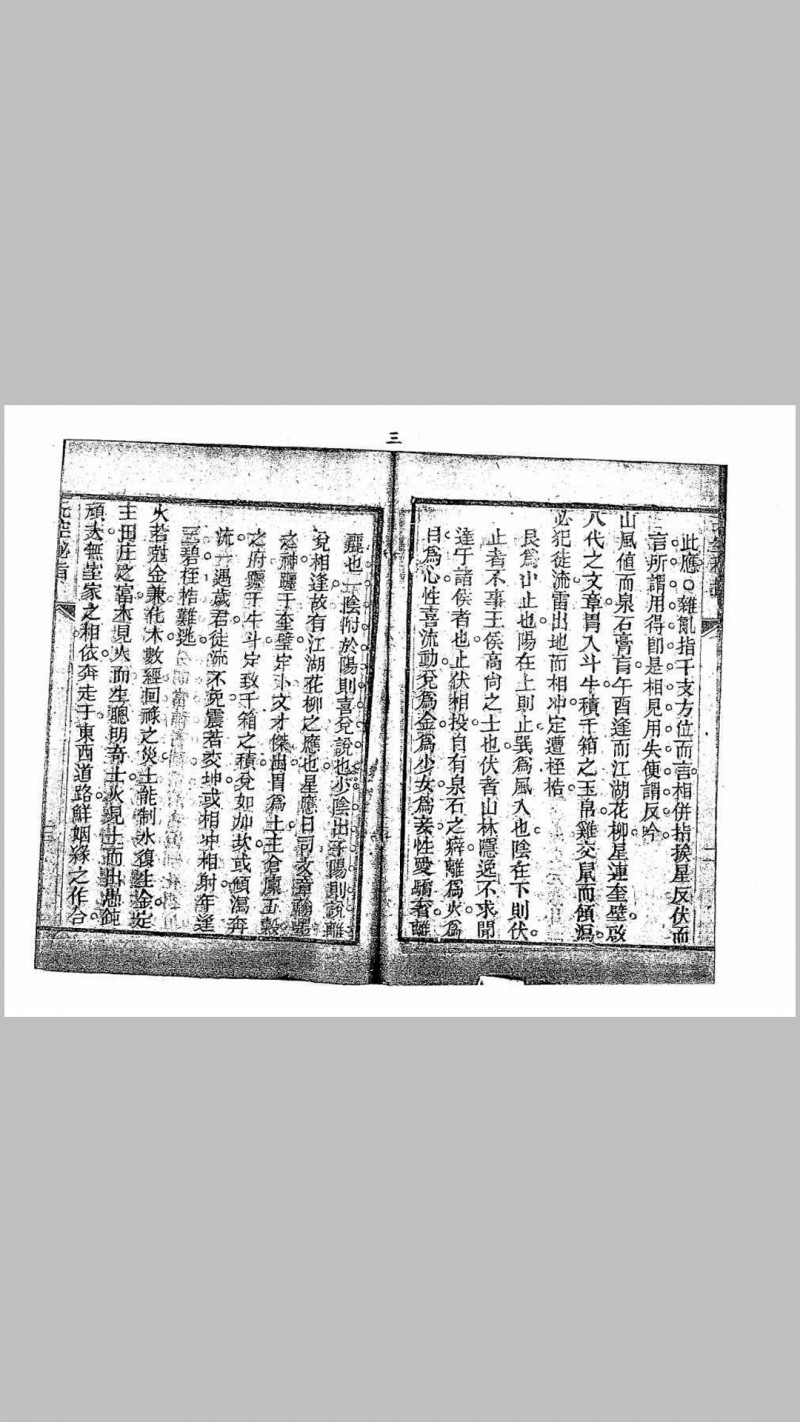 三
此應〇雜亂指干支方位而言相併指挨星反伏而
言所謂用得卽是相見用失便謂反吟
山風值而泉石膏肓午酉逢而江湖花柳星連奎壁啟
八代之文章胃入斗牛積千箱之玉帛雞交鼠而傾瀉
必犯徒流雷出地而相冲定遭桎梏
艮爲山止也陽在上則止巽爲風入也陰在下則伏
止者不事王侯高尚之士也伏者山林隱逸不求聞
達于諸侯者也止伏相投自有泉石之癖離爲火爲
目爲心性喜流動兌爲金爲少女爲妾性愛驕奢離
麗也一陰附於陽則喜兌說也少陰出于陽則說離
兌相逢故有江湖花柳之應也星應日司文章
之神躔于奎壁定卜文才傑出胃爲土主倉廩五穀
之府躔于牛斗定致千箱之積兌如加坎或傾瀉奔
流一遇歲君徒流不免震若交坤或相冲相射年逢
三碧桎梏難逃
火若尅金兼化木數經回祿之災土能制水復生金定
主田庄之富木見火而生聰明奇士火見土而出愚鈍
頑夫無室家之相依奔走于東西道路鮮姻緣之作合
元空秘旨